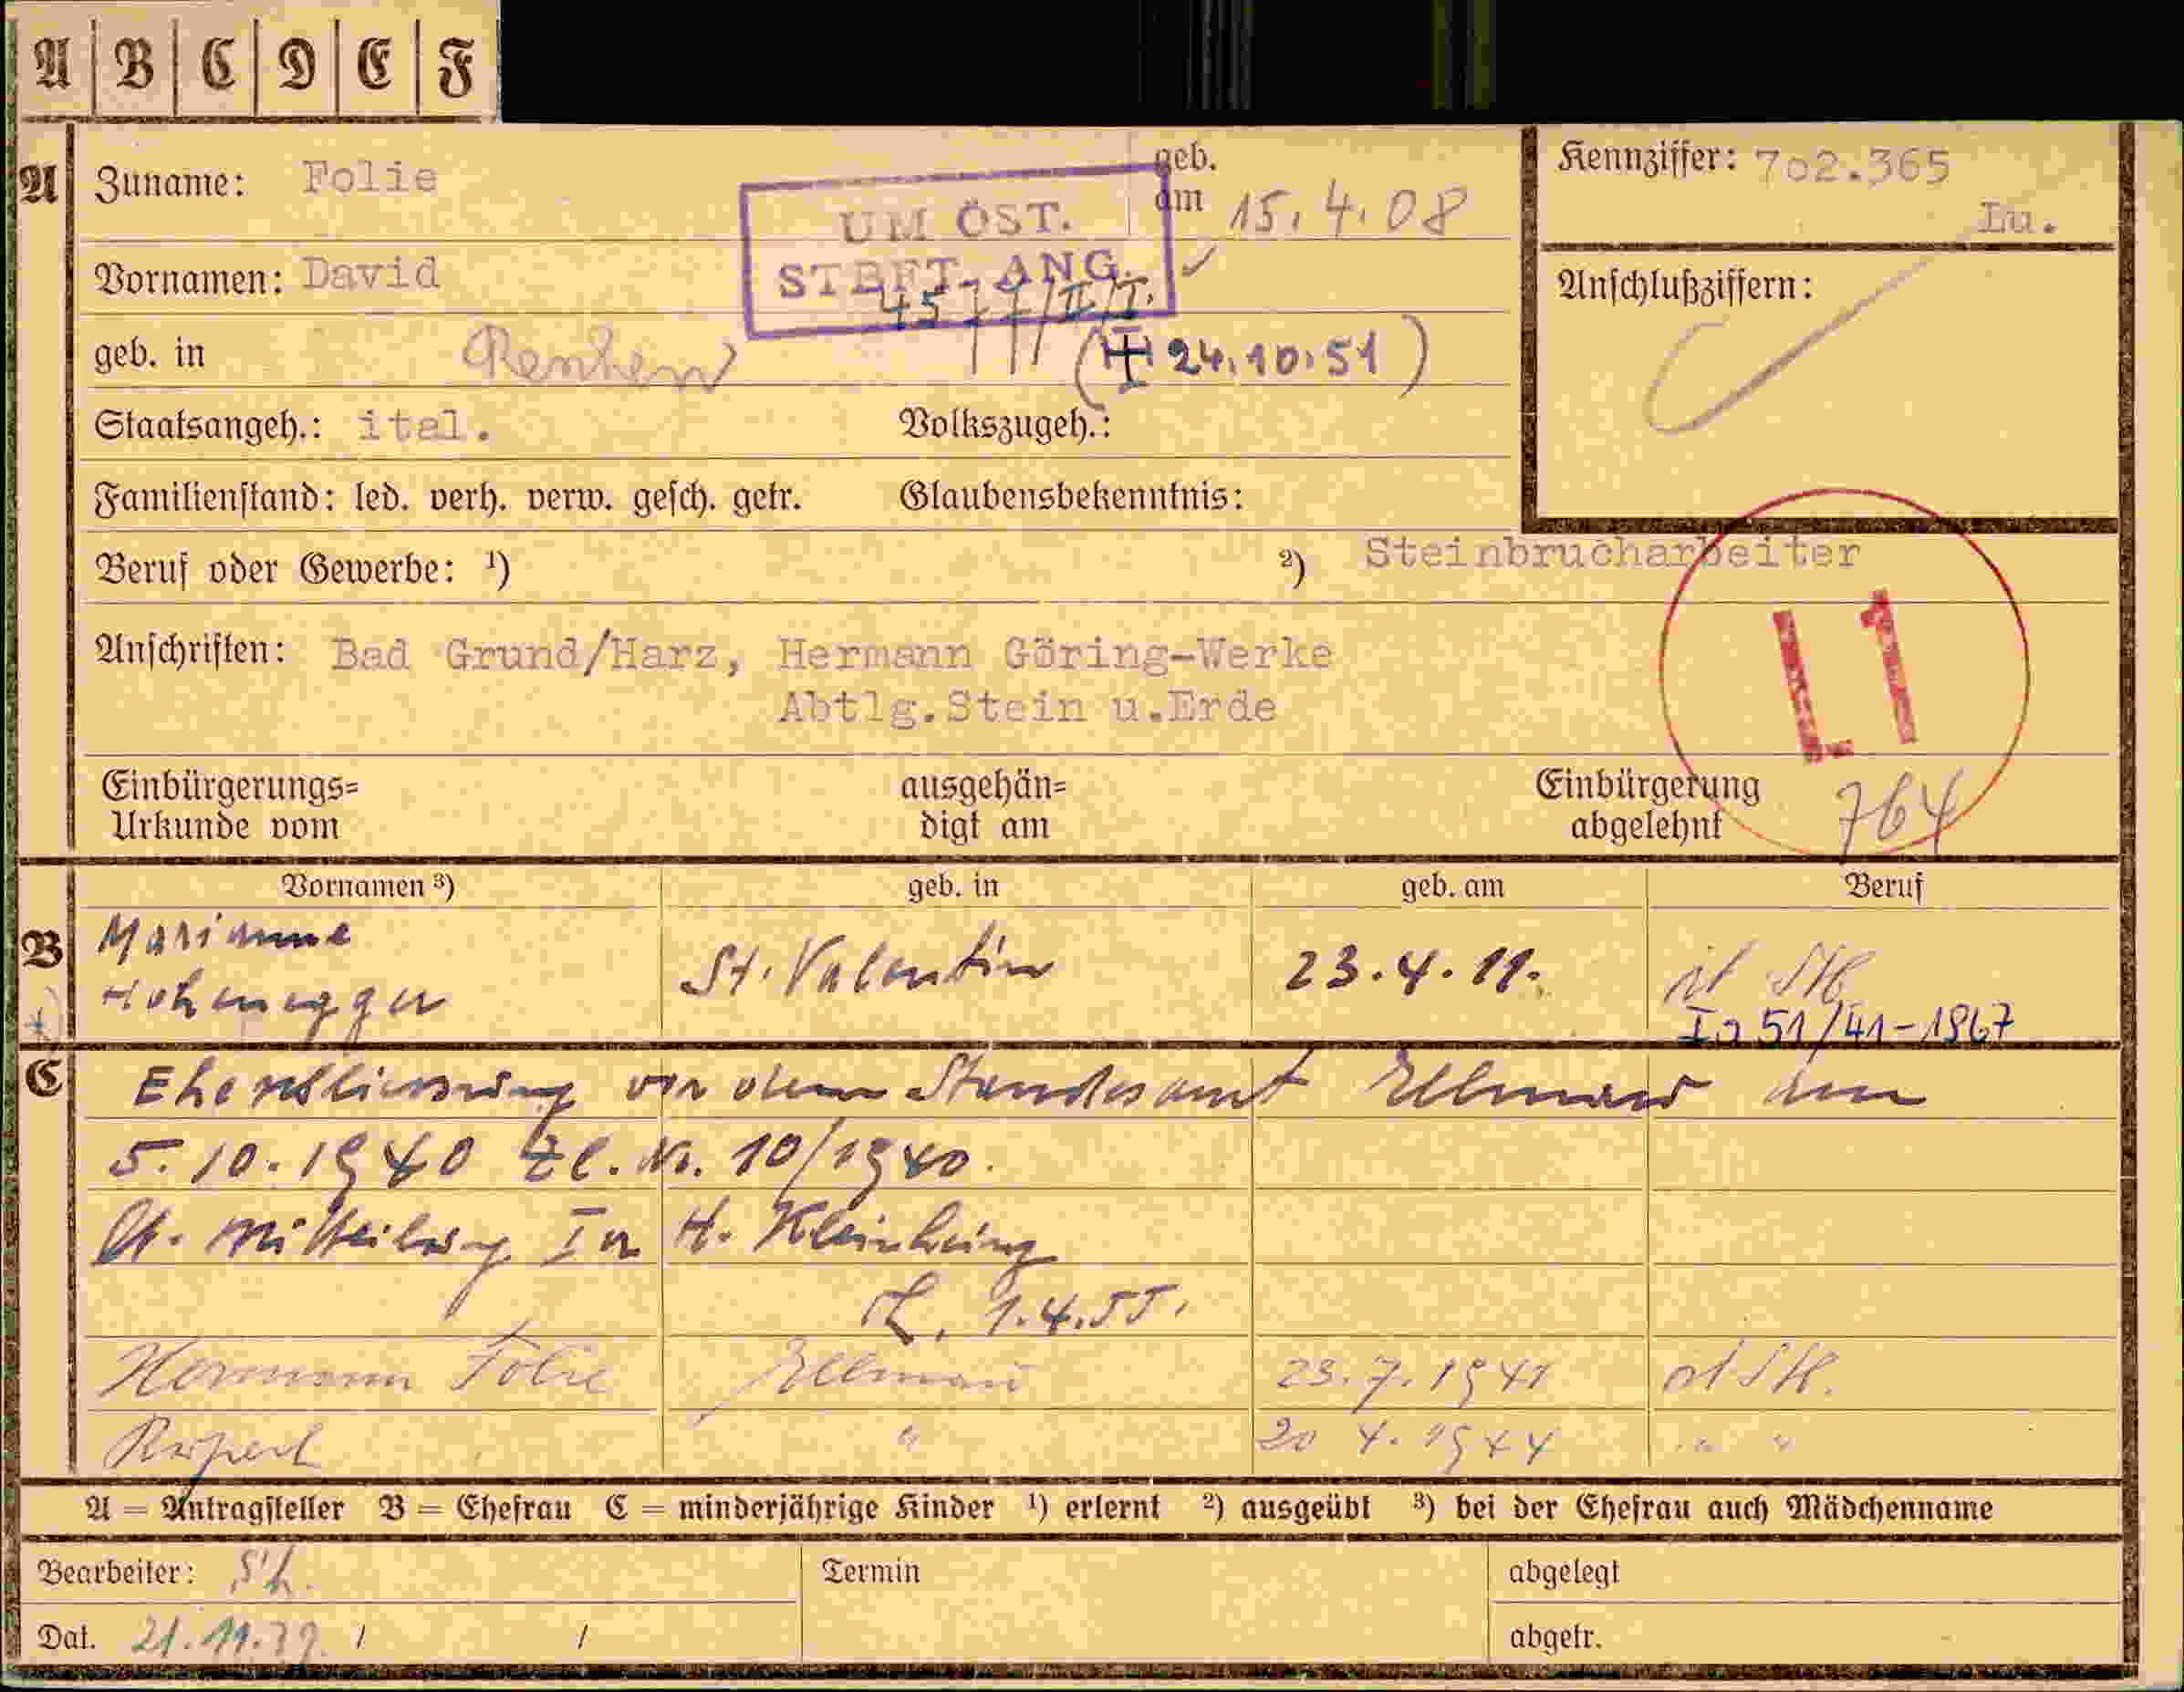 A B C D E F
A Zuname: Folie geb. am 15.4.08 Kennziffer: 702.365
Lu.
UM ÖST.
STBFT.-ANG.
Vornamen: David Anschlußziffern:
geb. in (24.10.51)
Staatsangeh.: ital. Volkszugeh.:
Familienstand: led. verh. verw. gesch. getr. Glaubensbekenntnis:
Beruf oder Gewerbe: 1) 2) Steinbrucharbeiter
Anschriften: Bad Grund/Harz, Hermann Göring-Werke
Abtlg.Stein u.Erde
L1
Einbürgerungs= Urkunde vom ausgehän= digt am Einbürgerung abgelehnt 764
Vornamen 3) geb. in geb. am Beruf
B Marianne St. Valentin 23.4.11.
Hohenegger Ia 51/41-1967
C Eheschliessung vor dem Standesamt Ellmau am
5.10.1940 Zl. Nr. 10/1940.
lt. Mitteilung Ia H. Kleinheinz
1.4.55.
Hermann Folie Ellmau 23.7.1941 dt StA.
Rupert " 20 4. 1944 " "
A = Antragsteller B = Ehefrau C = minderjährige Kinder 1) erlernt 2) ausgeübt 3) bei der Ehefrau auch Mädchenname
Bearbeiter: Termin abgelegt
Dat. 21.11.39. / / abgetr.